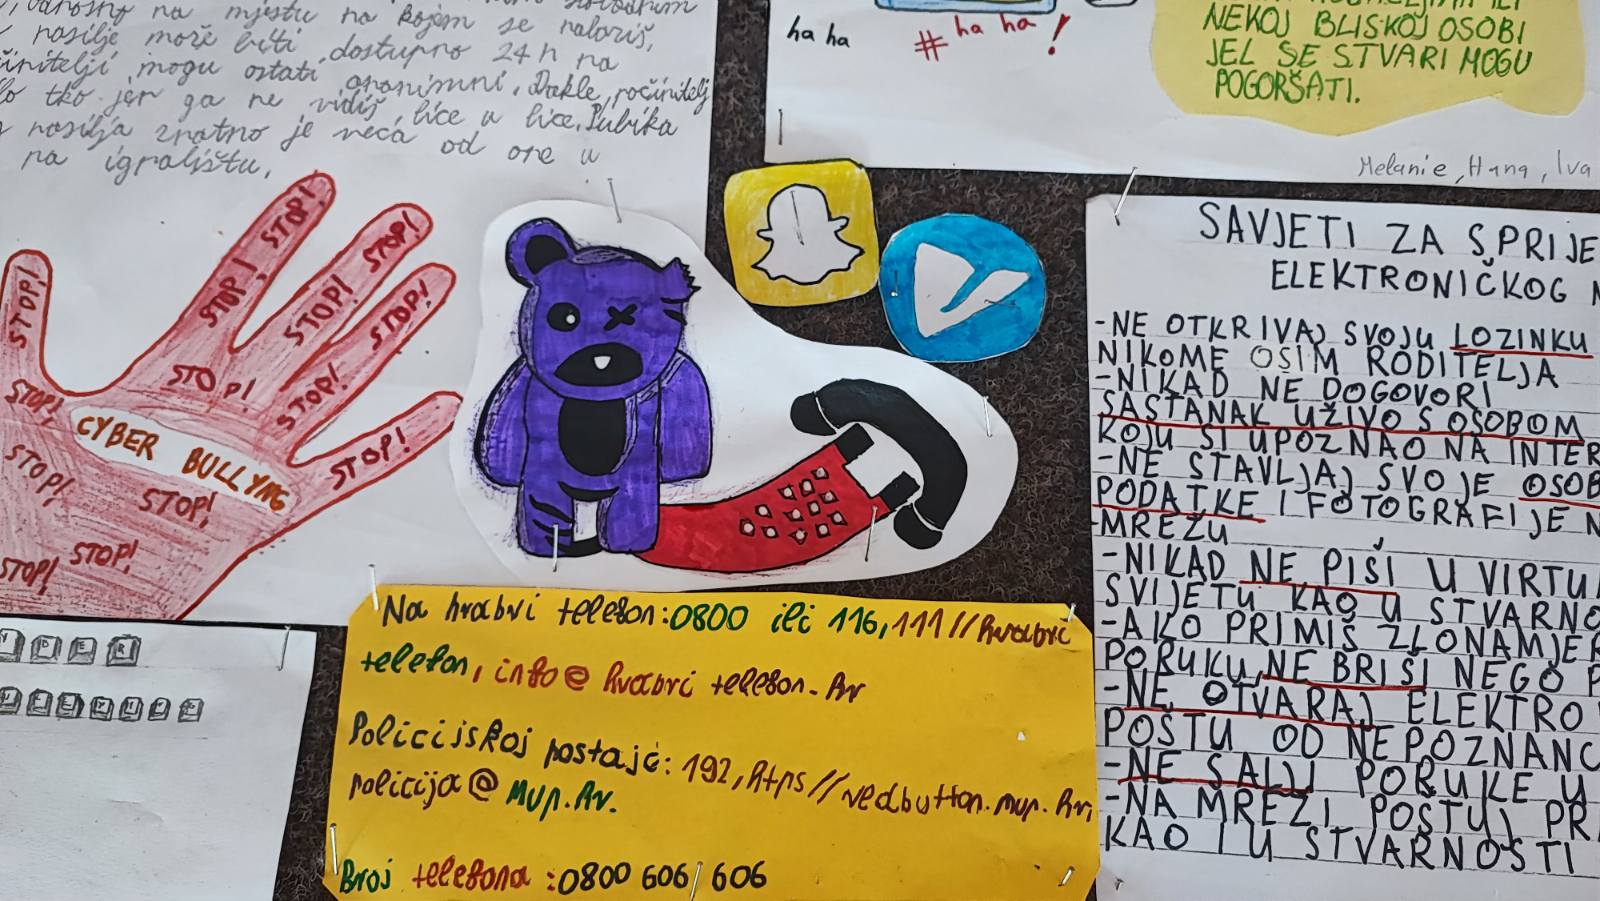 na mjestu na kojem se nalaziš,
nasilje može biti dostupno 24 h na
mogu ostati anonimni. Dakle, počinitelj
tko jer ga ne vidiš lice u lice. Publika
nasilja znatno je veća od one u
na igralištu.
ha ha
# ha ha !
NEKOJ BLISKOJ OSOBI
JEL SE STVARI MOGU
POGORŠATI.
Melanie, Hana, Iva
STOP!
STOP!
STOP!
STOP!
STOP!
STOP!
STOP!
STOP!
STOP!
STOP!
CYBER BULLYNG
STOP!
STOP!
STOP!
STOP!
Na hrabri telefon:0800 ili 116,111//hrabri
telefon, info@hrabri telefon.hr
Policijskoj postaji: 192, https//redbutton.mup.hr,
policija@mup.hr.
Broj telefona :0800 606/606
SAVJETI ZA SPRIJE
ELEKTRONIČKOG N
-NE OTKRIVAJ SVOJU LOZINKU
NIKOME OSIM RODITELJA
-NIKAD NE DOGOVORI
SASTANAK UŽIVO S OSOBOM
KOJU SI UPOZNAO NA INTER
-NE STAVLJAJ SVOJE OSOB
PODATKE I FOTOGRAFIJE N
MREŽU
-NIKAD NE PIŠI U VIRTU
SVIJETU KAO U STVARNO
-AKO PRIMIŠ ZLONAMJER
PORUKU, NE BRIŠI NEGO P
-NE OTVARAJ ELEKTRO
POŠTU OD NEPOZNANC
-NE ŠALJI PORUKE U
-NA MREŽI POŠTUJ PR
KAO I U STVARNOSTI